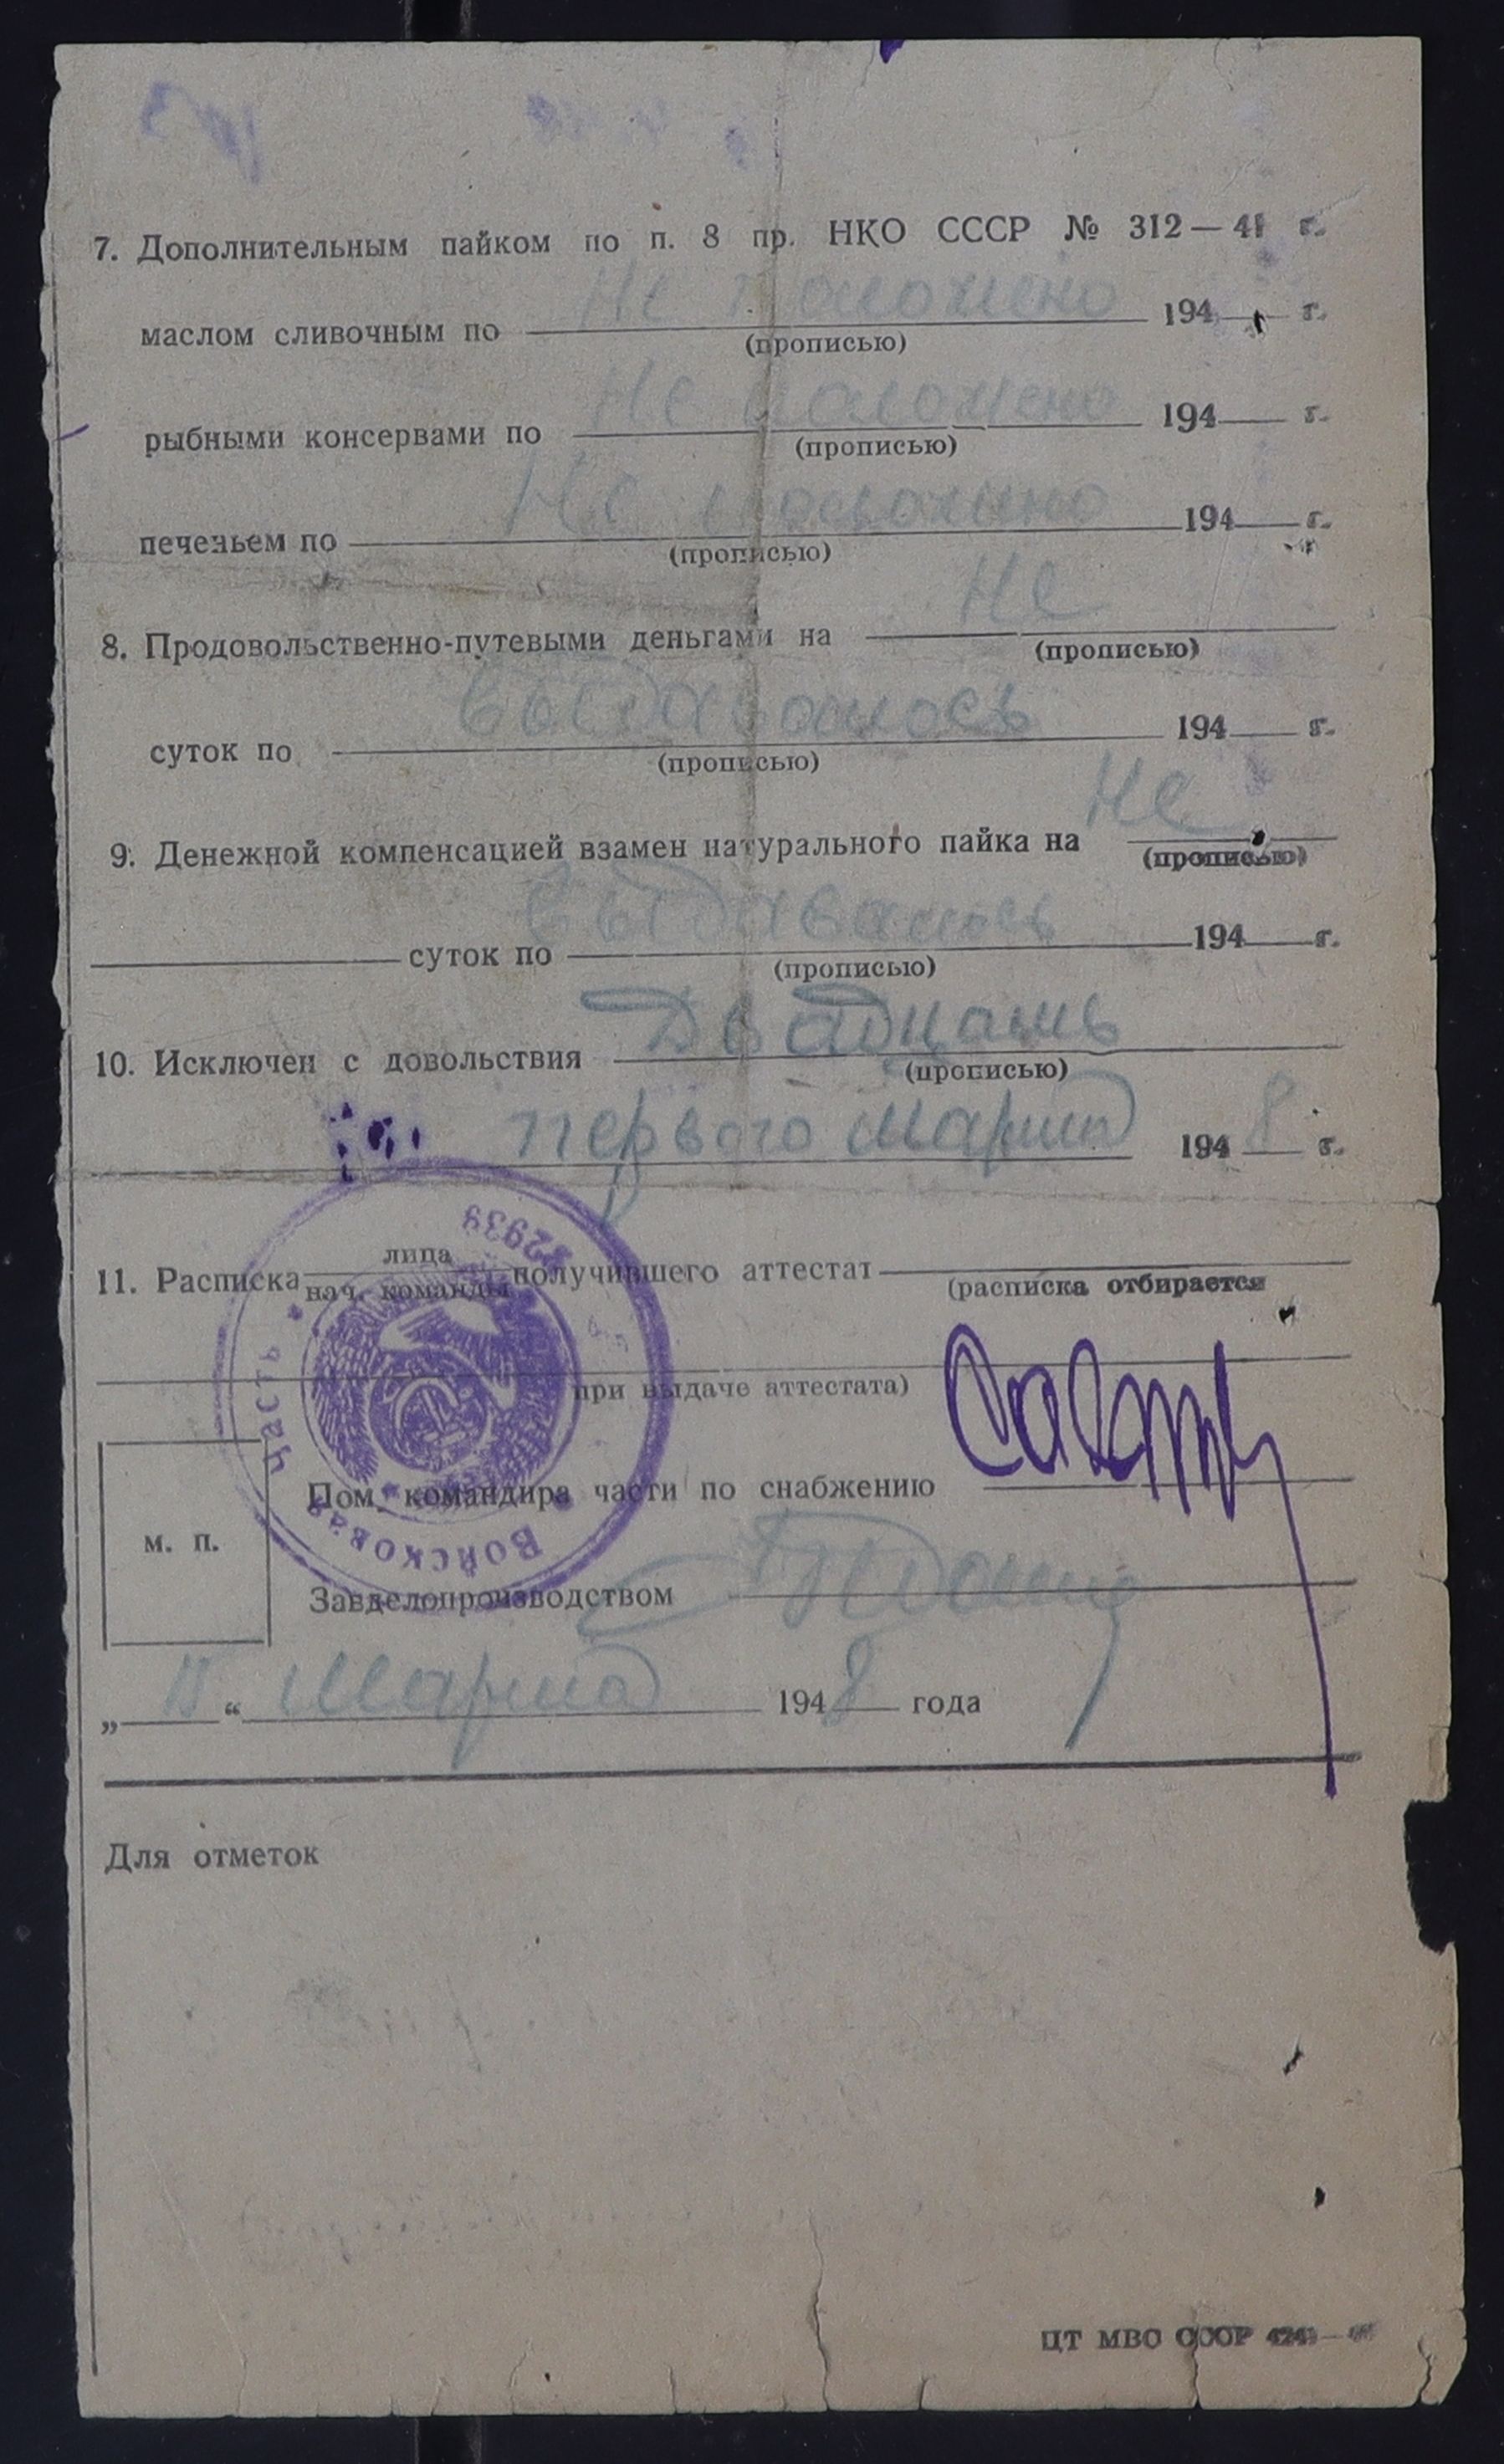 7. Дополнительным пайком по п. 8 пр. НКО СССР № 312—41 г.
Не положено
маслом сливочным по 194 г.
(прописью)
Не положено
рыбными консервами по 194 г.
(прописью)
Не положено
печеньем по 194 г.
(прописью)
Не
8. Продовольственно-путевыми деньгами на
(прописью)
выдавалось
суток по 194 г.
(прописью)
Не
9. Денежной компенсацией взамен натурального пайка на
(прописью)
выдавалось
суток по 194 г.
(прописью)
10. Исключен с довольствия Двадцать
(прописью)
первого Марта 1948 г.
11. Расписка лица получившего аттестат
нач. команды (расписка отбирается
при выдаче аттестата)
Пом. командира части по снабжению
м. п.
Завделопроизводством
„ “ Марта 1948 года
Войсковая часть 32939
Для отметок
ЦТ МВС СССР